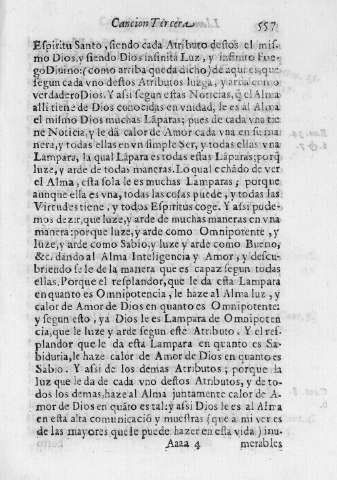 Cancion Tercera. 557
Espiritu Santo, siendo cada Atributo destos el mis-
mo Dios, y siendo Dios infinita Luz, y infinito Fue-
go Divino: (como arriba queda dicho) de aqui es, que
segun cada vno destos Atributos luzga, y arda como
verdadero Dios. Y assi segun estas Noticias, q̃ el Alma
alli tiene de Dios conocidas en vnidad, le es al Alma
el mismo Dios muchas Lãparas; pues de cada vna tie
ne Noticia, y le dà calor de Amor cada vna en su ma
nera, y todas ellas en vn simple Ser, y todas ellas vna
Lampara, la qual Lãpara es todas estas Lãparas; porq̃
luze, y arde de todas maneras. Lo qual echãdo de ver
el Alma, esta sola le es muchas Lamparas; porque
aunque ella es vna, todas las cosas puede, y todas las
Virtudes tiene, y todos Espiritus coge. Y assi pode-
mos dezir, que luze, y arde de muchas maneras en vna
manera: porque luze, y arde como Omnipotente, y
luze, y arde como Sabio, y luze y arde como Bueno,
&c. dando al Alma Inteligencia y Amor, y descu-
briendosele de la manera que es capaz segun todas
ellas. Porque el resplandor, que le da esta Lampara
en quanto es Omnipotencia, le haze al Alma luz, y
calor de Amor de Dios en quanto es Omnipotente:
y segun esto, ya Dios le es Lampara de Omnipoten
cia, que le luze y arde segun este Atributo. Y el res-
plandor que le da esta Lampara en quanto es Sa-
biduria, le haze calor de Amor de Dios en quanto es
Sabio. Y assi de los demas Atributos; porque la
luz que le da de cada vno destos Atributos, y de to-
dos los demas, haze al Alma juntamente calor de A-
mor de Dios en quãto es tal: y assi Dios le es al Alma
en esta alta comunicació y muestras (que a mi ver es
de las mayores que le puede hazer en esta vida) inu-
Aaaa 4 merables